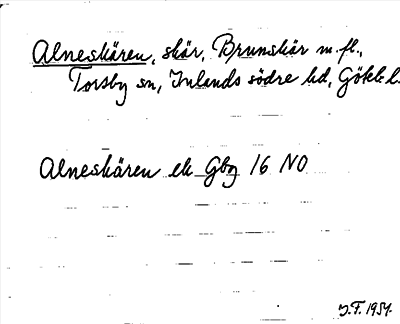 Alneskären, skär, Brunskär m. fl.,
Torsby sn, Inlands södre hd, Göteb. l.
Alneskären ek Gbg 16 NO
J.F. 1954.